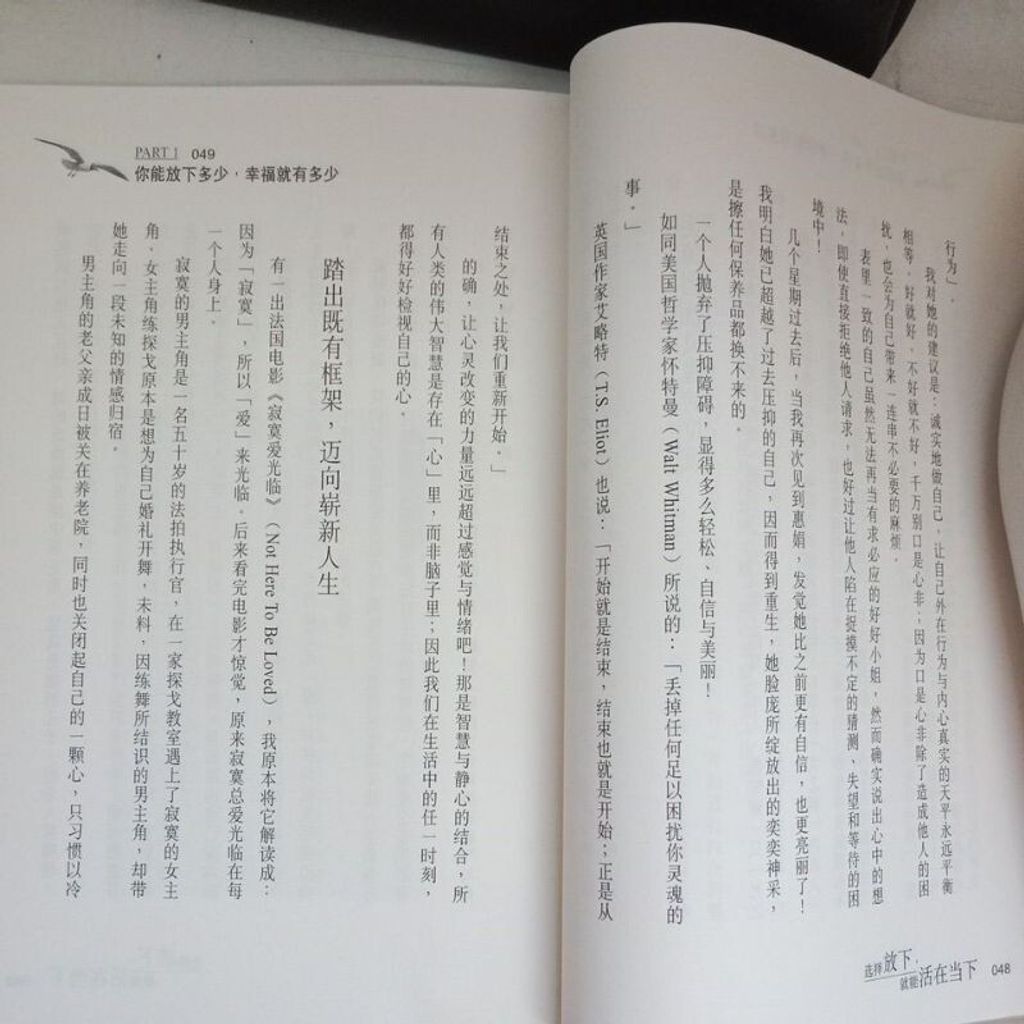 行为」.
我对她的建议是：诚实地做自己，让自己外在行为与内心真实的天平永远平衡
相等，好就好，不好就不好，千万别口是心非；因为口是心非除了造成他人的困
扰，也会为自己带来一连串不必要的麻烦.
表里一致的自己虽然无法再当有求必应的好好小姐，然而确实说出心中的想
法，即使直接拒绝他人请求，也好过让他人陷在捉摸不定的猜测、失望和等待的困
境中！
几个星期过去后，当我再次见到惠娟，发觉她比之前更有自信，也更亮丽了！
我明白她已超越了过去压抑的自己，因而得到重生，她脸庞所绽放出的奕奕神采，
是擦任何保养品都换不来的.
一个人抛弃了压抑障碍，显得多么轻松、自信与美丽！
如同美国哲学家怀特曼（Walt Whitman）所说的：「丢掉任何足以困扰你灵魂的
事.」
英国作家艾略特（T.S. Eliot）也说：「开始就是结束，结束也就是开始；正是从
选择放下，
就能活在当下 048
PART 1 049
你能放下多少，幸福就有多少
结束之处，让我们重新开始.」
的确，让心灵改变的力量远远超过感觉与情绪吧！那是智慧与静心的结合，所
有人类的伟大智慧是存在「心」里，而非脑子里；因此我们在生活中的任一时刻，
都得好好检视自己的心.
踏出既有框架，迈向崭新人生
有一出法国电影《寂寞爱光临》（Not Here To Be Loved），我原本将它解读成：
因为「寂寞」，所以「爱」来光临. 后来看完电影才惊觉，原来寂寞总爱光临在每
一个人身上.
寂寞的男主角是一名五十岁的法拍执行官，在一家探戈教室遇上了寂寞的女主
角. 女主角练探戈原本是想为自己婚礼开舞，未料，因练舞所结识的男主角，却带
她走向一段未知的情感归宿.
男主角的老父亲成日被关在养老院，同时也关闭起自己的一颗心，只习惯以冷